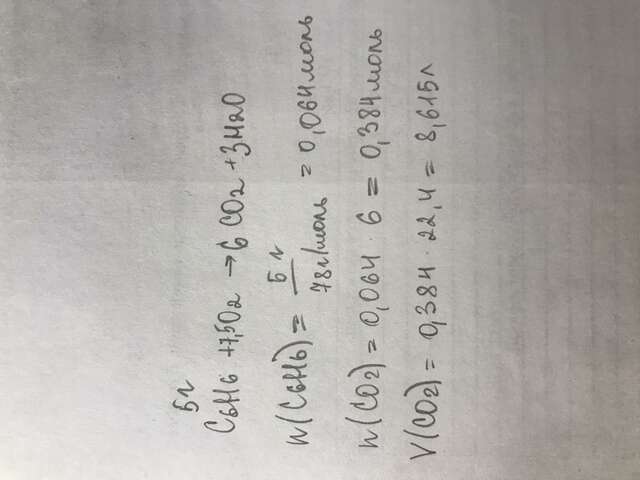 5г
C6H6 + 7,5O2 → 6 CO2 + 3H2O
n(C6H6) = 5 г / 78г/моль = 0,064моль
n(CO2) = 0,064 · 6 = 0,384моль
V(CO2) = 0,384 · 22,4 = 8,615л